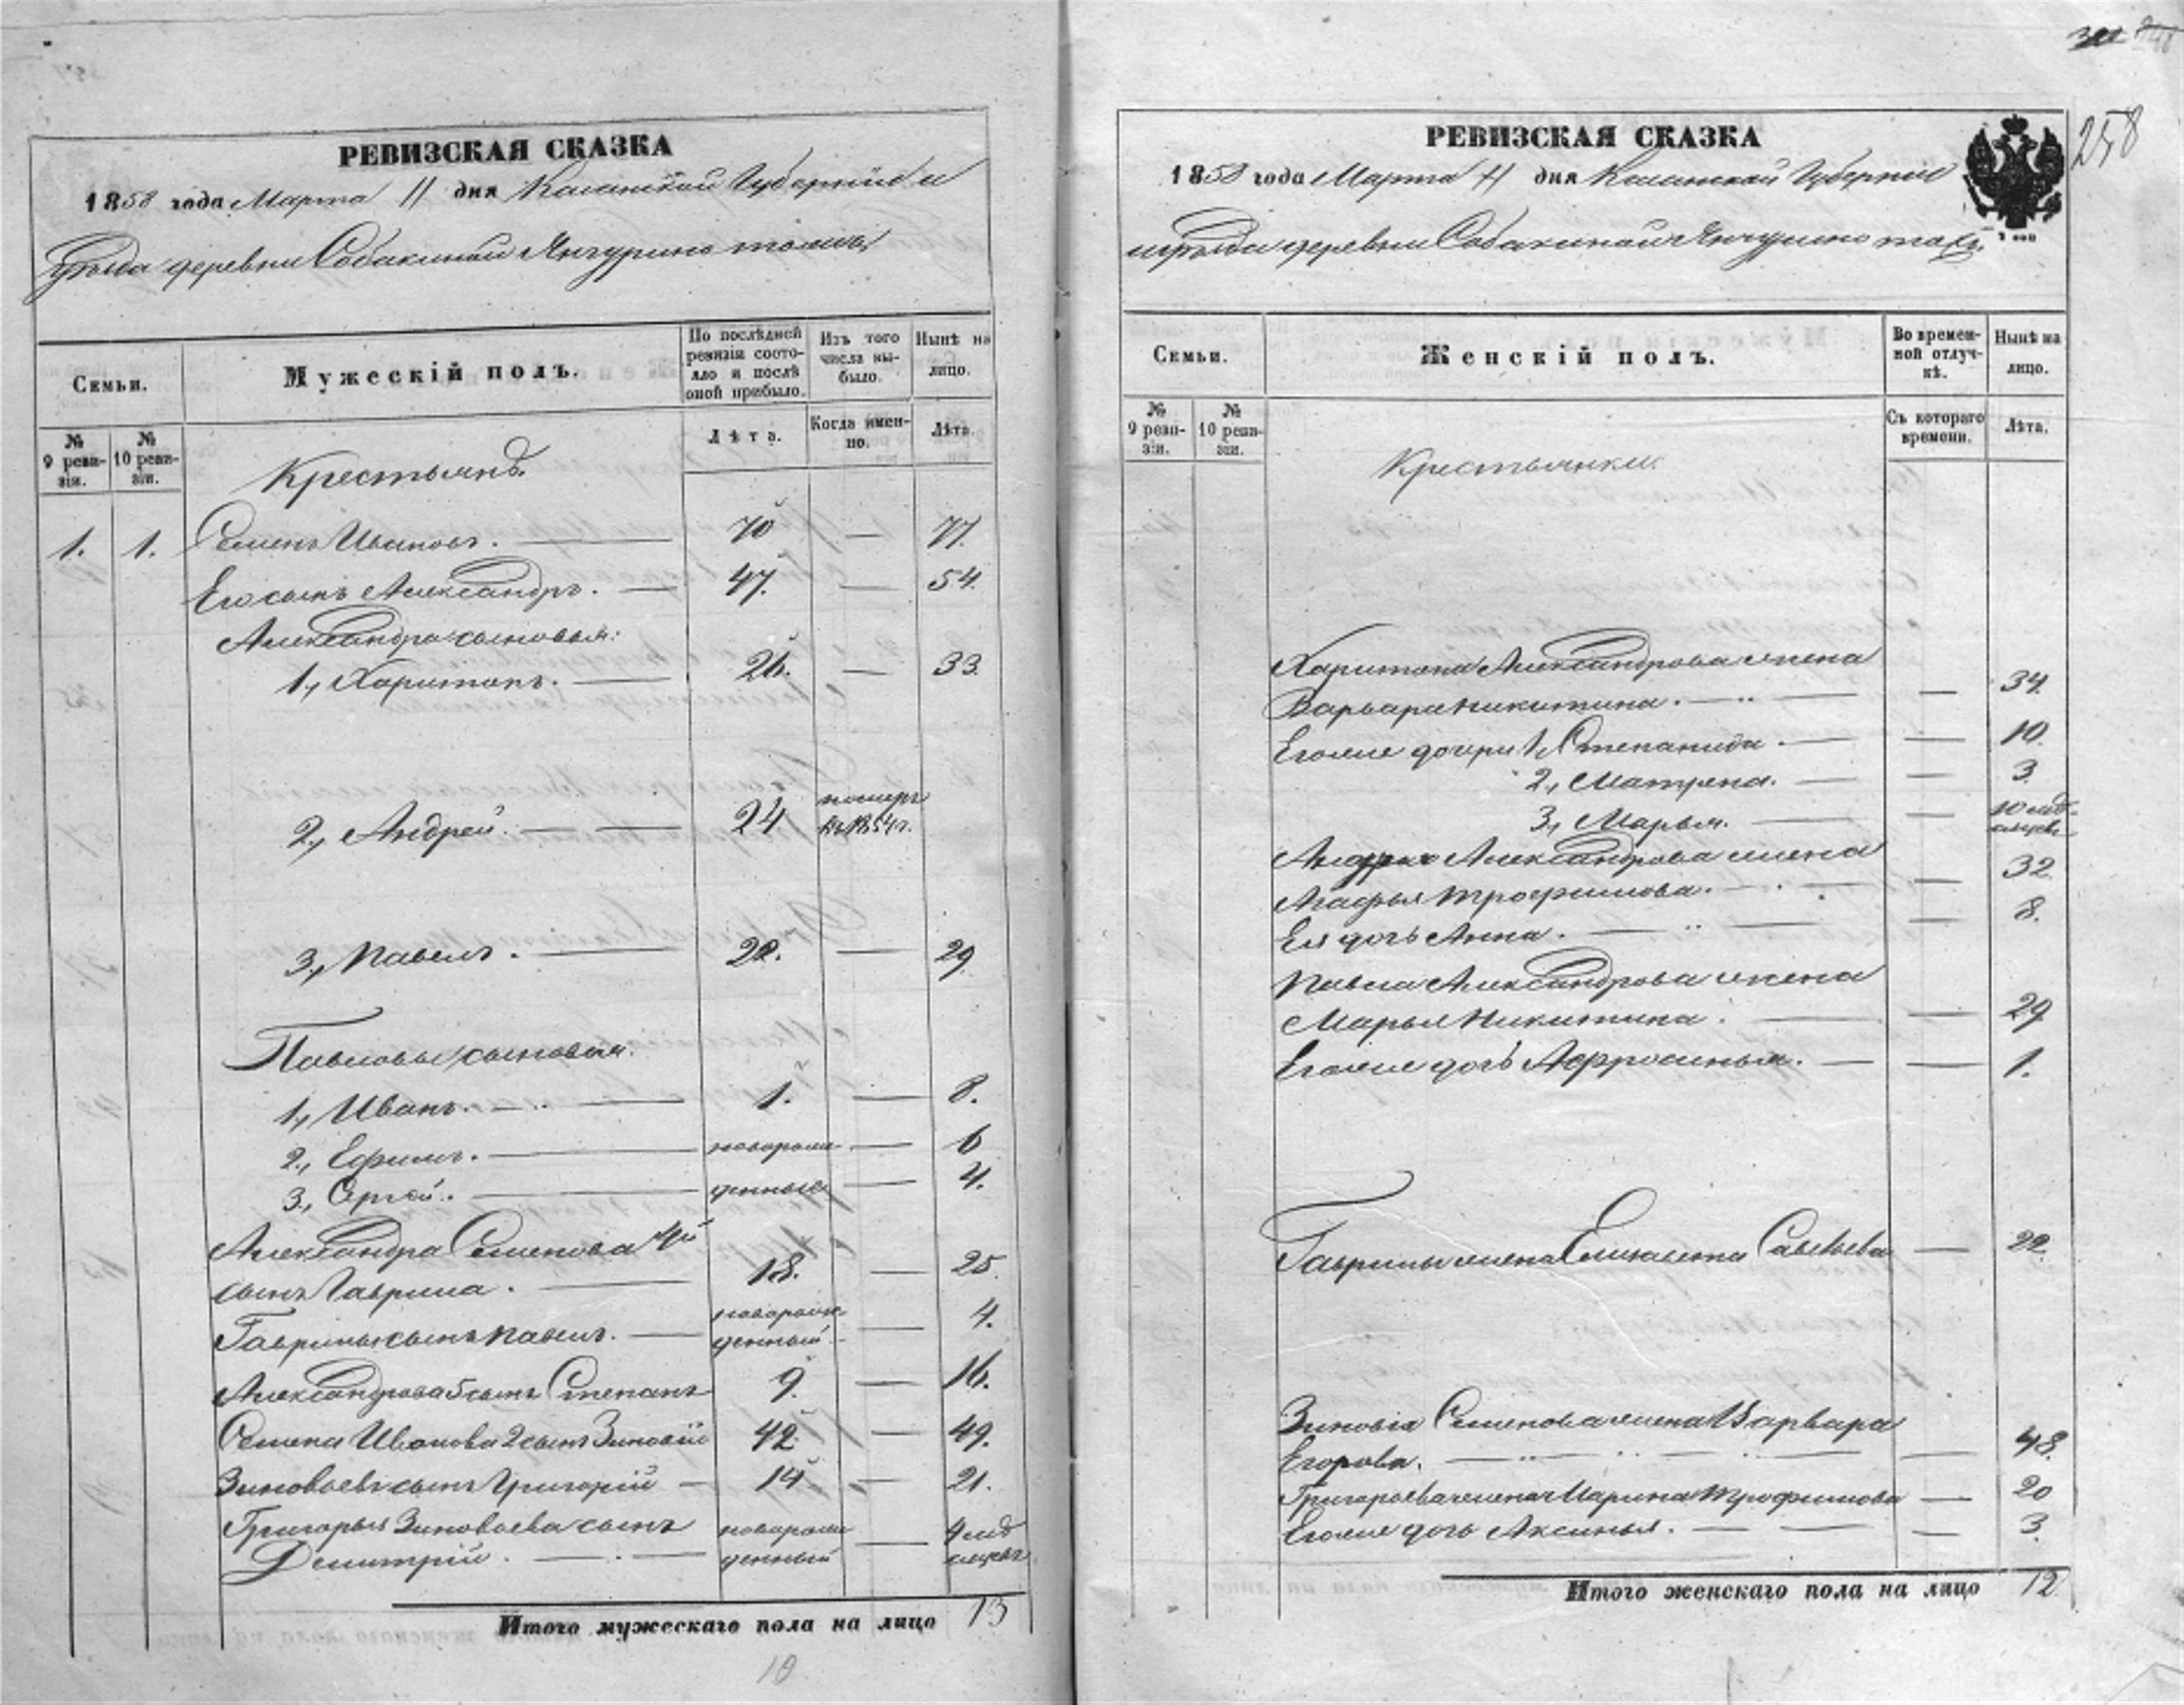 258
РЕВИЗСКАЯ СКАЗКА
1858 года Марта 11 дня Казанской Губерніи и
Уѣзда деревни Собакиной Янчурино тожъ
Семьи.
Мужескій полъ.
По послѣдней ревизіи состояло и послѣ оной прибыло.
Изъ того числа выбыло.
Нынѣ на лицо.
№ 9 ревизіи.
№ 10 ревизіи.
Лѣта.
Когда именно.
Лѣта.
Крестьянъ
1. 1. Семенъ Ивановъ. 70 — 77.
Его сынъ Александръ. 47. — 54.
Александра сыновья:
1., Харитонъ. 26. — 33.
2., Андрей. 24 померъ въ 1854 г.
3., Павелъ. 22. — 29
Павловы сыновья:
1., Иванъ. 1. — 8.
2., Ефимъ. новорож- — 6
3., Сергѣй. денные — 4.
Александра Семенова 4й
сынъ Гаврила. 18. — 25.
Гаврилы сынъ Павелъ. новорожденный — 4.
Александрова 5 сынъ Степанъ 9. — 16.
Семена Иванова 2 сынъ Зиновій 42 — 49.
Зиновьевъ сынъ Григорій 14 — 21.
Григорья Зиновьева сынъ новорож- 4 мѣ-
Демитрій. денный — сяцевъ
Итого мужескаго пола на лицо 13
РЕВИЗСКАЯ СКАЗКА
1858 года Марта 11 дня Казанской Губерніи
и уѣзда деревни Собакиной Янчурино тожъ.
Семьи.
Женскій полъ.
Во временной отлучкѣ.
Нынѣ на лицо.
№ 9 ревизіи.
№ 10 ревизіи.
Съ котораго времени.
Лѣта.
Крестьянки
Харитона Александрова жена
Варвара Никитина. — 34.
Его же дочери 1, Степанида. — 10.
2., Матрена. — 3.
3., Марья. 10 мѣсяцевъ
Андрея Александрова жена
Агафья Трофимова. — 32
Ея дочь Анна. — 8.
Павла Александрова жена
Марья Никитина. — 29
Его же дочь Афросинья. — 1.
Гаврилы жена Елизавета Савельева — 22.
Зиновія Семенова жена Варвара
Егорова. — 48.
Григорьева жена Марина Трофимова — 20
Его же дочь Аксинья. — 3.
Итого женскаго пола на лицо 12